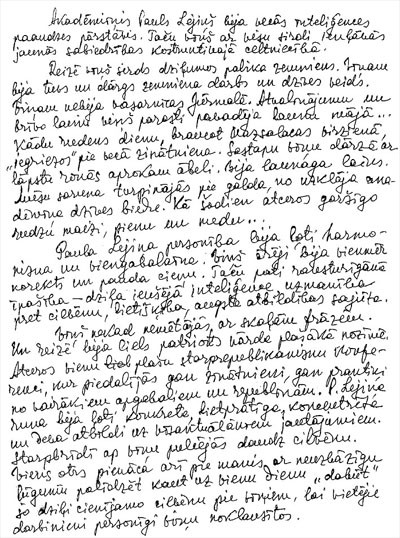 Akadēmiķis Pauls Lejiņš bija vecās inteliģences
paaudzes pārstāvis. Taču viņš ar visu sirdi iekļāvās
jaunās sabiedrības konstruktīvajā celtniecībā.
Reizē viņš sirds dziļumos palika zemnieks. Viņam
bija tuvs un dārgs zemnieka darbs un dzīves veids.
Viņam nebija vasarnīcas Jūrmalā. Atvaļinājumu un
brīvo laiku viņš parasti pavadīja lauku mājā...
Kādu rudens dienu, braucot Mazsalacas virzienā,
"iegriezos" pie vecā zinātnieka. Sastapu viņu dārzā ar
lāpstu rokās aprokam ābeli. Bija launaga laiks.
Mūsu saruna turpinājās pie galda, no uzklāja ana-
dīvoņa dzīves biedre. Kā šodien atceros garšīgo
rudzu maizi, pienu un medu...
Paula Lejiņa personība bija ļoti harmo-
niska un viengabalaina. Viņš ārēji bija vienmēr
korekts un pauda cieņu. Taču pati raksturīgākā
īpašība – dziļa iekšējā inteliģence, uzmanība
pret cilvēku, lietišķība, augsta atbildības sajūta.
Viņš nekad nemētājās ar skaļām frāzēm.
Un reizē bija liels patriots vārda plašākā nozīmē.
Atceros vienu plašu starprepublikānisku konfe-
renci, kur piedalījās gan zinātnieki, gan praktiķi
no vairākiem apgabaliem un republikām. P. Lejiņa
runa bija ļoti konkrēta, lietpratīga, koncentrēta
un deva atbildi uz visaktuālākiem jautājumiem.
Starpbrīdī ap viņu pulcējās daudz cilvēku.
Vienis otrs pienāca arī pie manis ar neuzbāzīgu
lūgumu palīdzēt kaut uz vienu dienu "dabūt"
šo dziļi cienījamo cilvēku pie viņiem, lai vietējie
darbinieki personīgi viņu noklausītos.